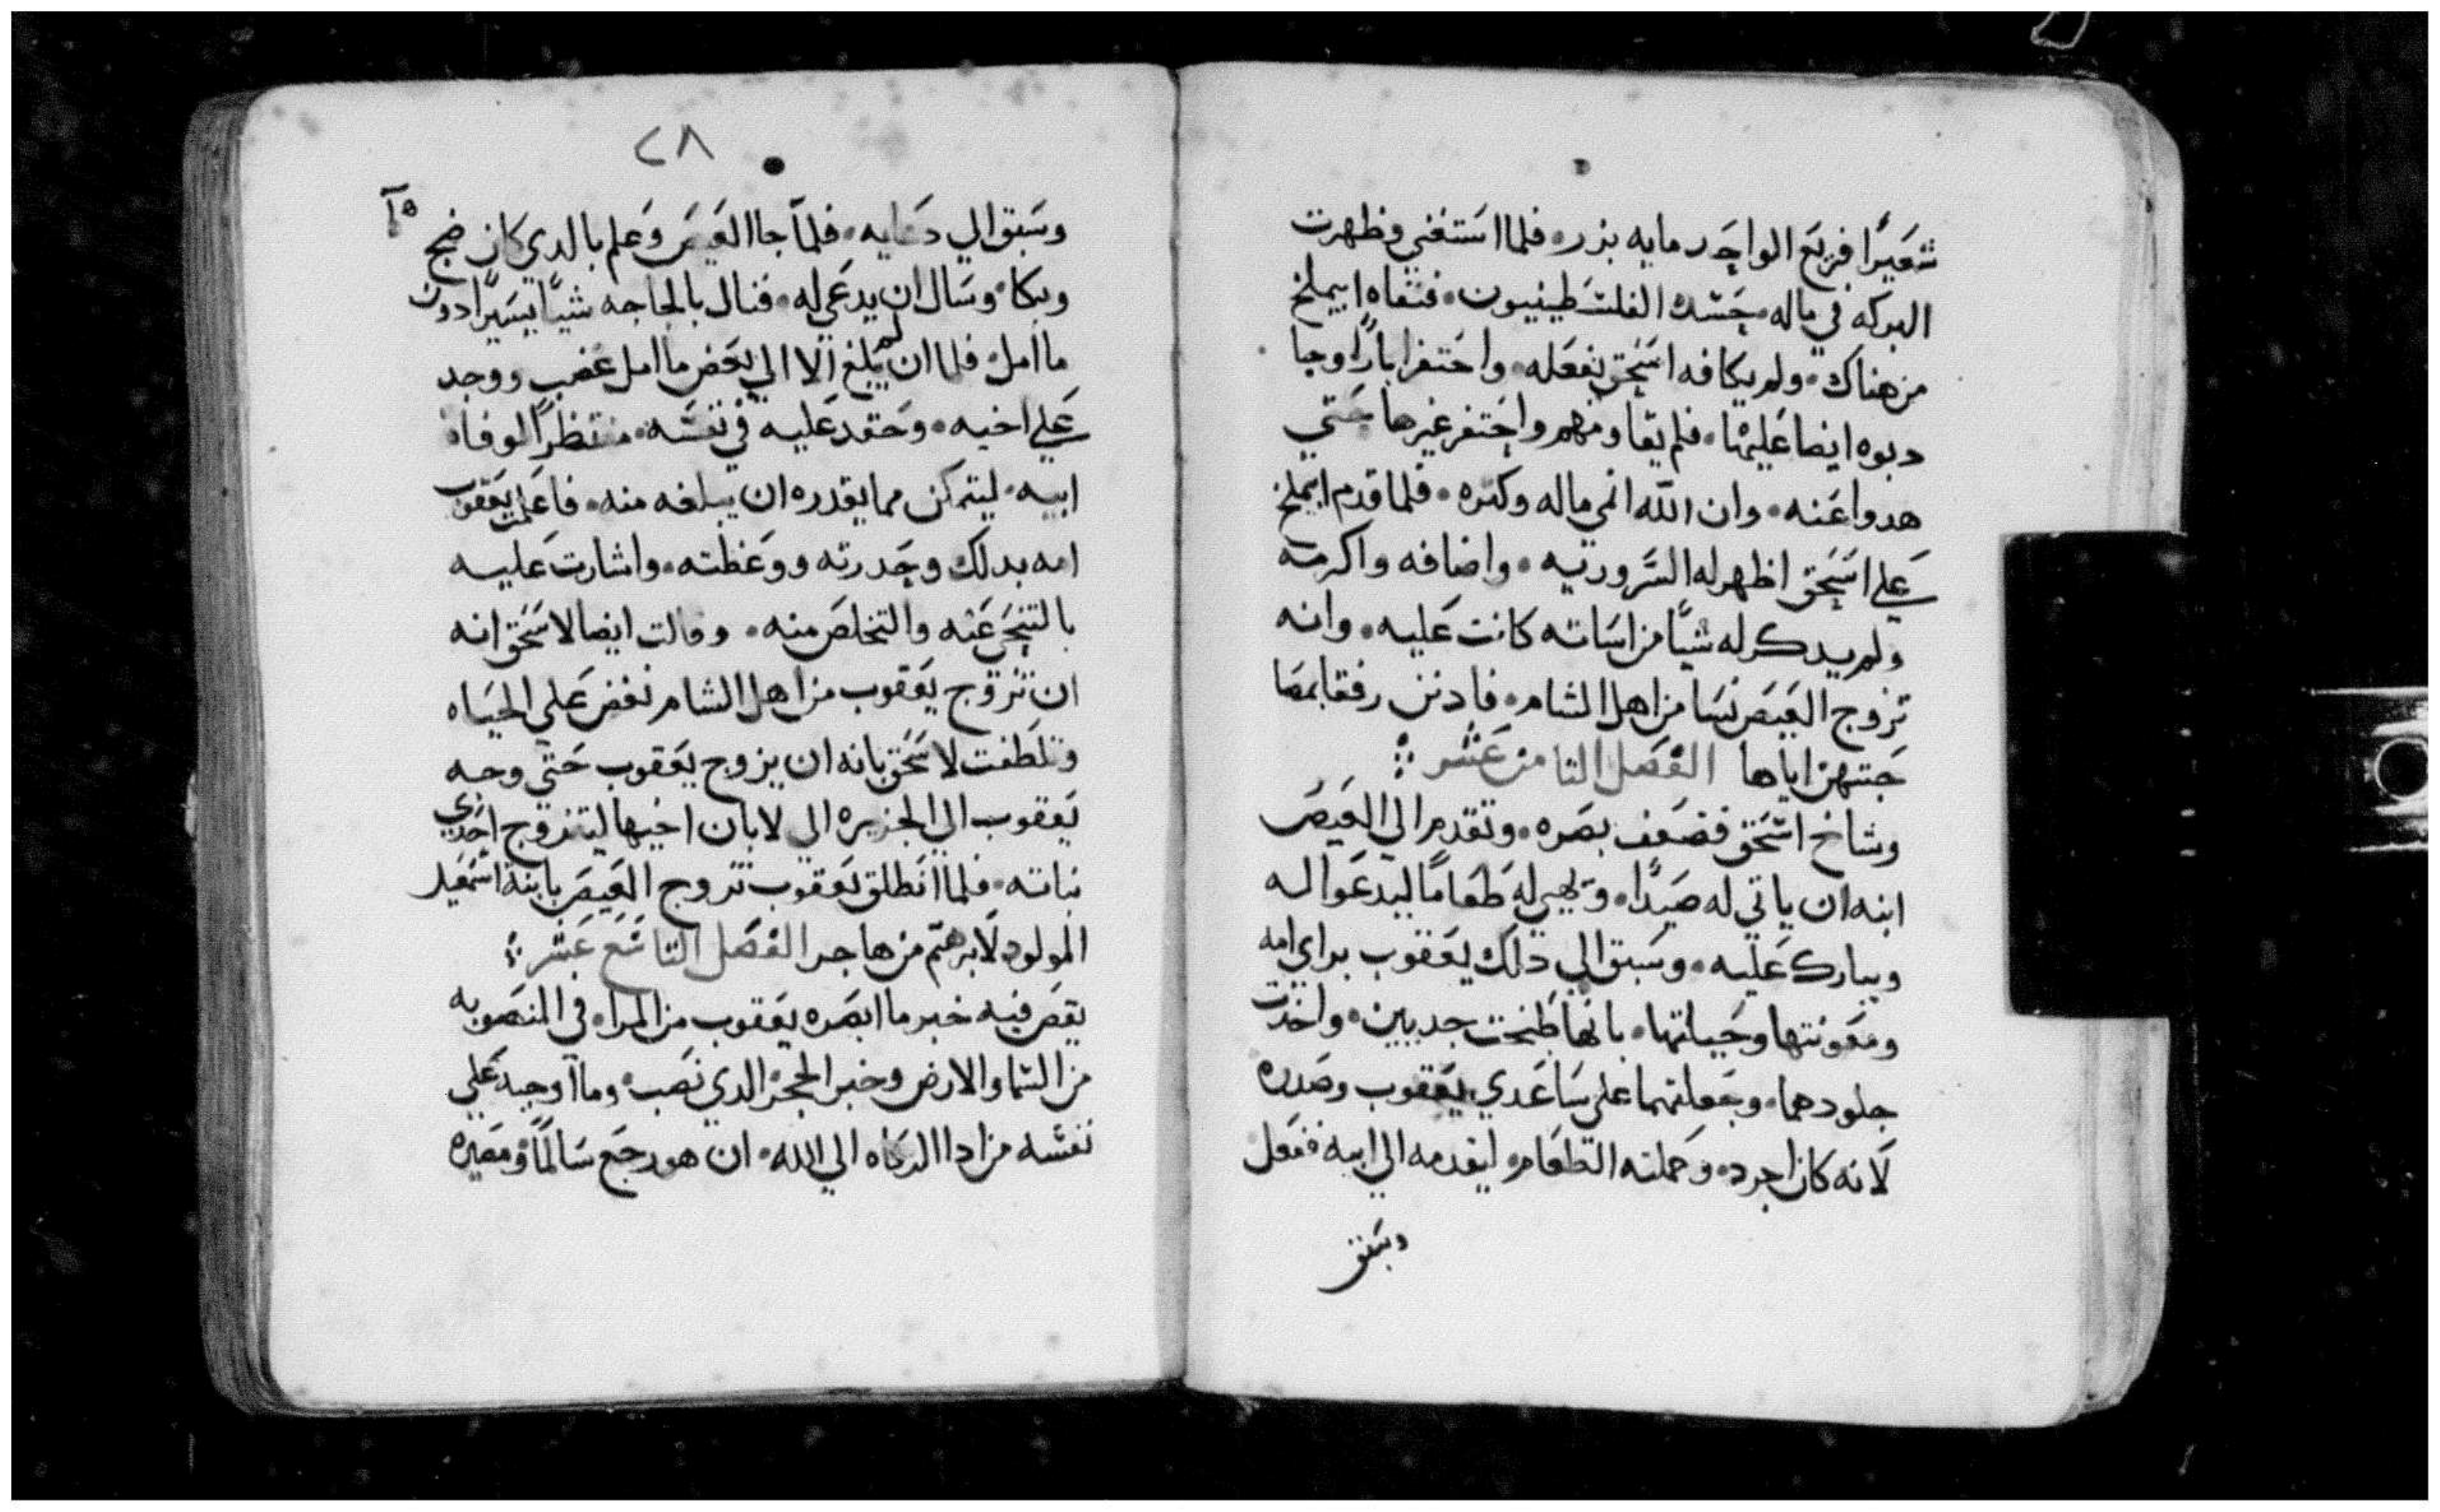 شعيرًا فريع الواحد مايه بذر. فلما استغني وظهرت
البركه في ماله. حسده الفلسطينيون. فنفاه ابيملخ
من هناك. ولم يكافه اسحق بفعله. واحتفر ابارًا وجا
دبوه ايضا عليها. فلم يقاومهم واحتفر غيرها حتي
هدوا عنه. وان الله انمي ماله وكتره. فلما قدم ابيملخ
علي اسحق اظهر له السرور به. واضافه واكرمه
ولم يدكر له شيًا من اساته كانت عليه. وانه
تزوج العيص نسا من اهل الشام. فادنن رفقا بمضا
جتهن اياها الفصل التامن عشر
وشاخ اسحق فضعف بصره. وتقدم الي العيص
ابنه ان ياتي له صيدًا. ويهيي له طعامًا ليدعوا له
ويبارك عليه. وسبق الي دلك يعقوب براي امه
ومعونتها وحيلتها. بانها طبخت جديين. واخدت
جلودهما. وجعلتهما علي ساعدي يعقوب وصدره
لانه كان اجرد. وحملته الطعام. ليقدمه الي ابيه ففعل
وسبق
٢٨
وسبق الي دعايه. فلما جا العيص وعلم بالدي كان ضج
وبكا. وسال ان يدعي له. فنال بالحاجه شيًا يسيرًا دون
ما امل. فلما ان لم يبلغ الا الي بعض ما امل غضب ووجد
علي اخيه. وحقد عليه في نفسه. منتظرًا لوفاه
ابيه. ليتمكن مما يقدره ان يبلغه منه. فاعلمت يعقوب
امه بدلك وحدرته ووعظته. واشارت عليه
بالتنحي عنه والتخلص منه. وقالت ايضا لاسحق انه
ان تزوج يعقوب من اهل الشام نغض علي الحياه
وتلطفت لاسحق بانه ان يزوج يعقوب حتي وجه
يعقوب الي الجزيره الي لابان اخيها ليتزوج احدي
بناته. فلما انطلق يعقوب تزوج العيص بابنة اسمعيل
المولود لابرهيم من هاجر الفصل التاسع عشر
يقص فيه خبر ما ابصره يعقوب من المراه في المنصوبه
من السما والارض وخبر الحجر الدي نصب. وما اوجبه علي
نفسه من ادا الزكاه الي الله. ان هو رجع سالمًا ومصيره